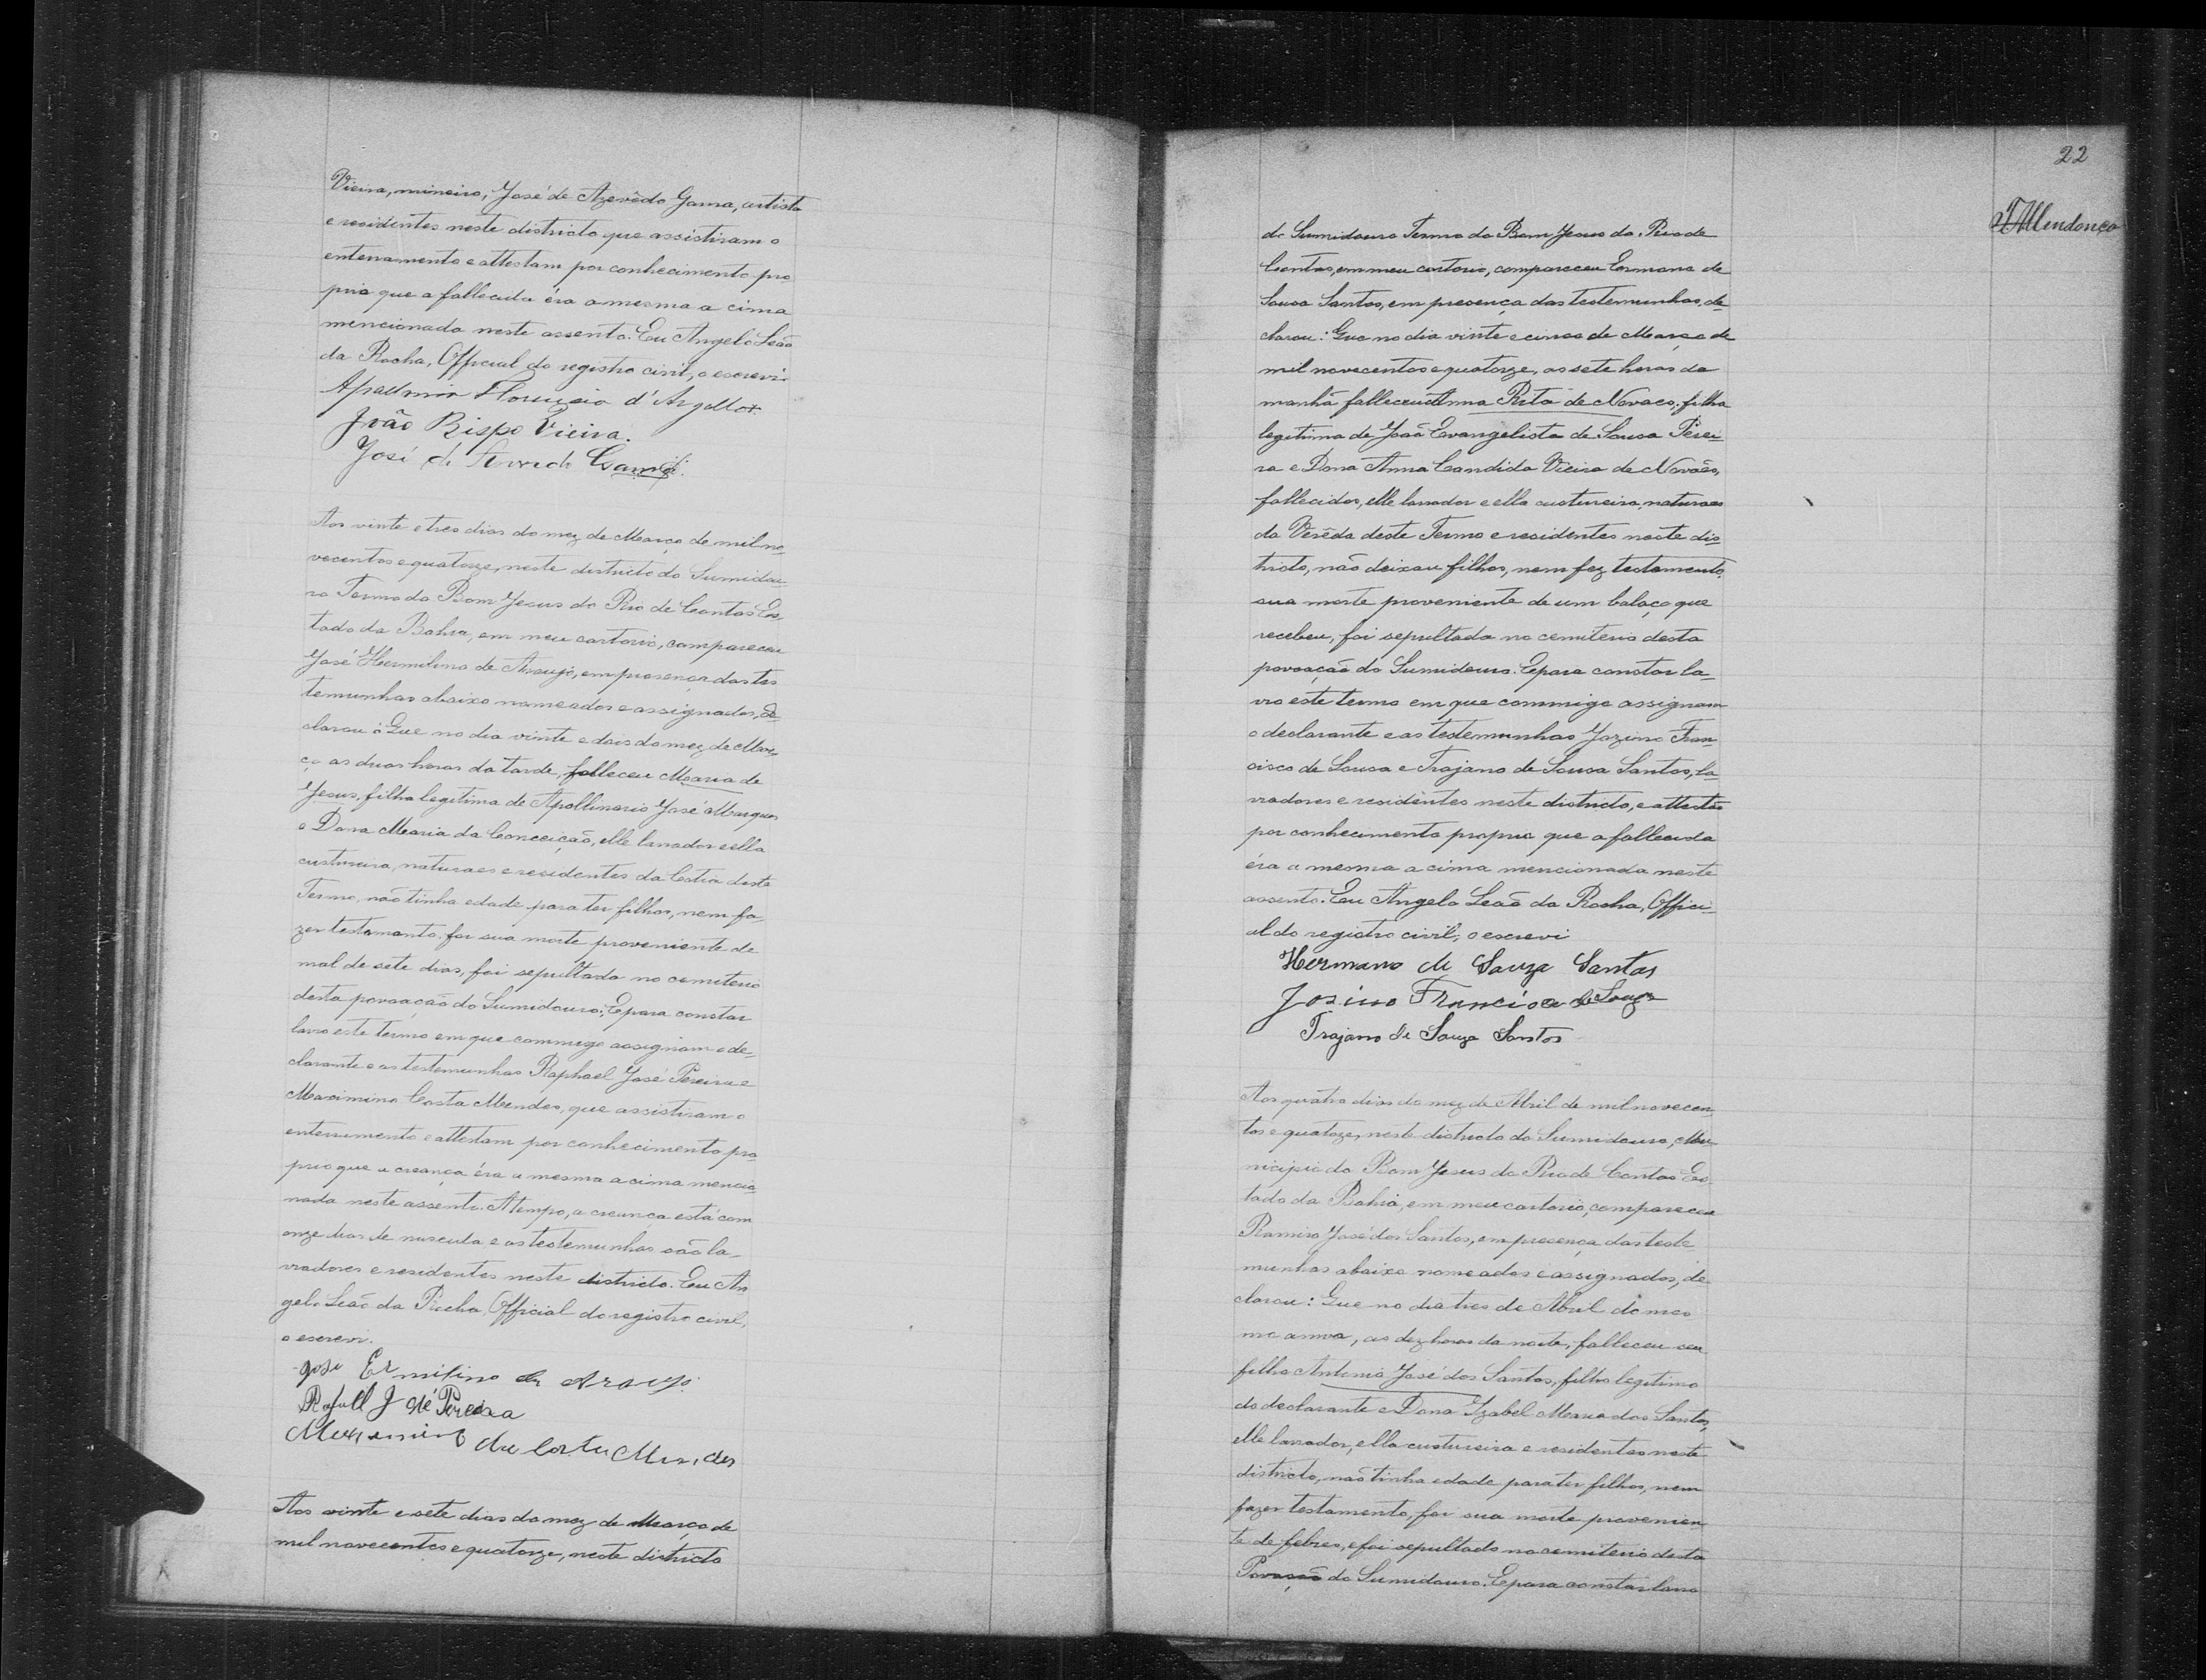 Vieira, mineiro, José de Azevêdo Gama, artista
e residentes neste districto que assistiram o
enterramento e attestam por conhecimento pro
prio que a fallecida éra a mesma a cima
mencionada neste assento. Eu Angelo Leão
da Rocha, Official do registro civil, o escrevi.
d'Argollo
João Bispo Vieira.
José de Gama
Aos vinte e tres dias do mez de Março de mil no-
vecentos e quatorze, neste districto do Sumidou
ro Termo do Bom Jesus do Rio de Contas Es-
tado da Bahia, em meu cartorio, compareceu
José Hermilino de Araujo, em presença das tes
temunhas abaixo nomeados e assignados, de-
clarou: Que no dia vinte e dois do mez de Mar-
ço as duas horas da tarde, falleceu Maria de
Jesus, filha legitima de Apollinario José Marques
e Dona Maria da Conceição, elle lavrador e ella
custureira, naturaes e residentes da deste
Termo, não tinha edade para ter filhos, nem fa-
zer testamento, foi sua morte proveniente de
mal de sete dias, foi sepultada no cemiterio
desta povoação do Sumidouro. E para constar
lavro este termo em que commigo assignam o de-
clarante e as testemunhas Raphael José Pereira e
Maximino Costa Mendes, que assistiram o
enterramento e attestam por conhecimento pro
prio que a creança éra a mesma a cima mencio-
nada neste assento. A tempo, a creança está com
onze dias de nascida e as testemunhas são la-
vradores e residentes neste districto. Eu An
gelo Leão da Rocha, Official do registro civil,
o escrevi.
José Ermilino de Araujo
Rafaell José Pereira
Maximino da Costa Mendes
Aos vinte e sete dias do mez de Março de
mil novecentos e quatorze, neste districto
22
do Sumidouro Termo do Bom Jesus do Rio de
Contas, em meu cartorio, compareceu Ermano de
Sousa Santos, em presença das testemunhas, de-
clarou: Que no dia vinte e cinco de Março de
mil novecentos e quatorze, as sete horas da
manhã falleceu Anna Rita de Novaes, filha
legitima de João Evangelista de Sousa Perei-
ra e Dona Anna Candida Vieira de Novaes,
fallecidos, elle lavrador e ella custureira, naturaes
da Verêda deste Termo e residentes neste dis-
tricto, não deixou filhos, nem fez testamento,
sua morte proveniente de um balaço que
recebeu, foi sepultada no cemiterio desta
povoação do Sumidouro. E para constar la-
vro este termo em que commigo assignam
o declarante e as testemunhas Jozino Fran-
cisco de Sousa e Trajano de Sousa Santos, la-
vradores e residêntes neste districto, e attestão
por conhecimento proprio que a fallecida
éra a mesma a cima mencionada neste
assento. Eu Angelo Leão da Rocha, Offici-
al do registro civil, o escrevi
Hermano de Souza Santos
Josino Francisco de Souza
Trajano de Souza Santos
Aos quatro dias do mez de Abril de mil novecen
tos e quatorze, neste districto do Sumidouro, Mu-
nicipio do Bom Jesus do Rio de Contas Es-
tado da Bahia, em meu cartorio, compareceu
Ramiro José dos Santos, em presença das teste
munhas abaixo nomeados e assignados, de-
clarou: Que no dia tres de Abril do mes
mo anno, as dez horas da noite, falleceu seu
filho Antonio José dos Santos, filho legitimo
do declarante e Dona Izabel Maria dos Santos,
elle lavrador, ella custureira e residentes neste
districto, não tinha edade para ter filhos, nem
fazer testamento, foi sua morte provenien
te de febres, e foi sepultado no cemiterio desta
Povoação do Sumidouro. E para constar lavro